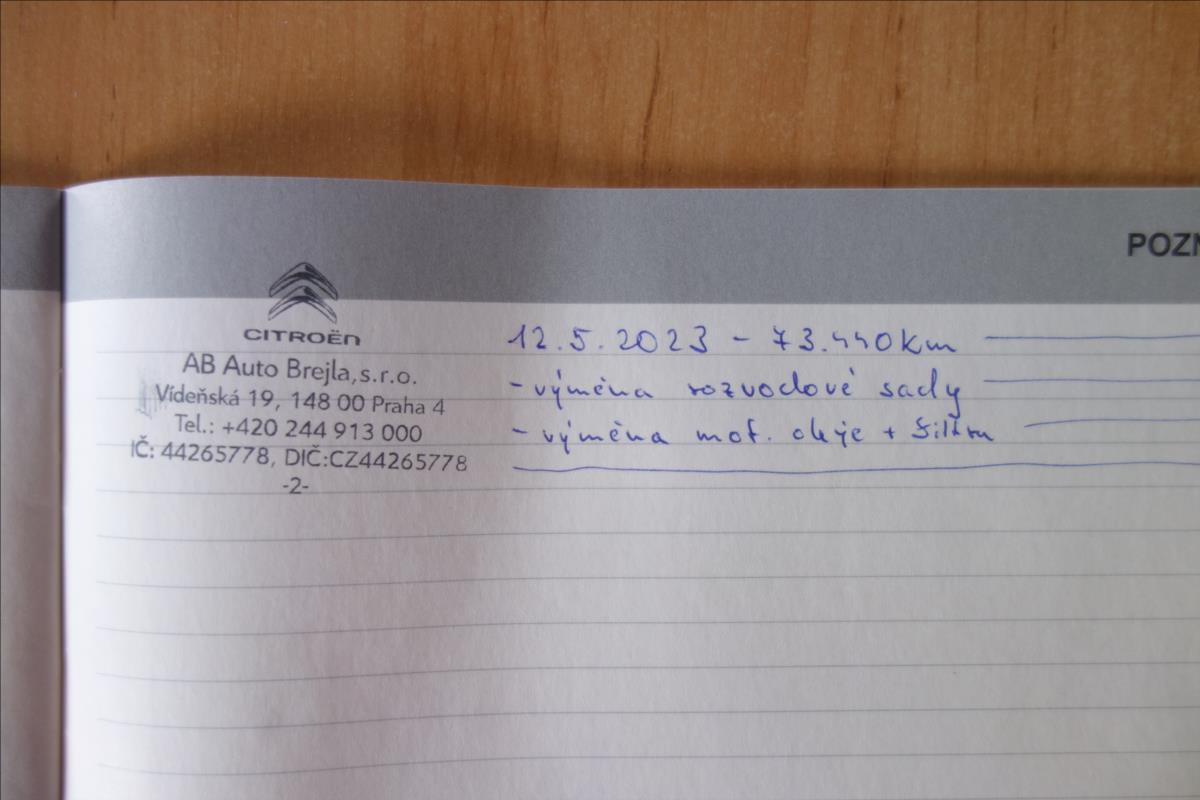 POZN
CITROËN
AB Auto Brejla,s.r.o.
Vídeňská 19, 148 00 Praha 4
Tel.: +420 244 913 000
IČ: 44265778, DIČ:CZ44265778
-2-
12.5.2023 - 73.440km
- výměna rozvodové sady
- výměna mot. oleje + filtru